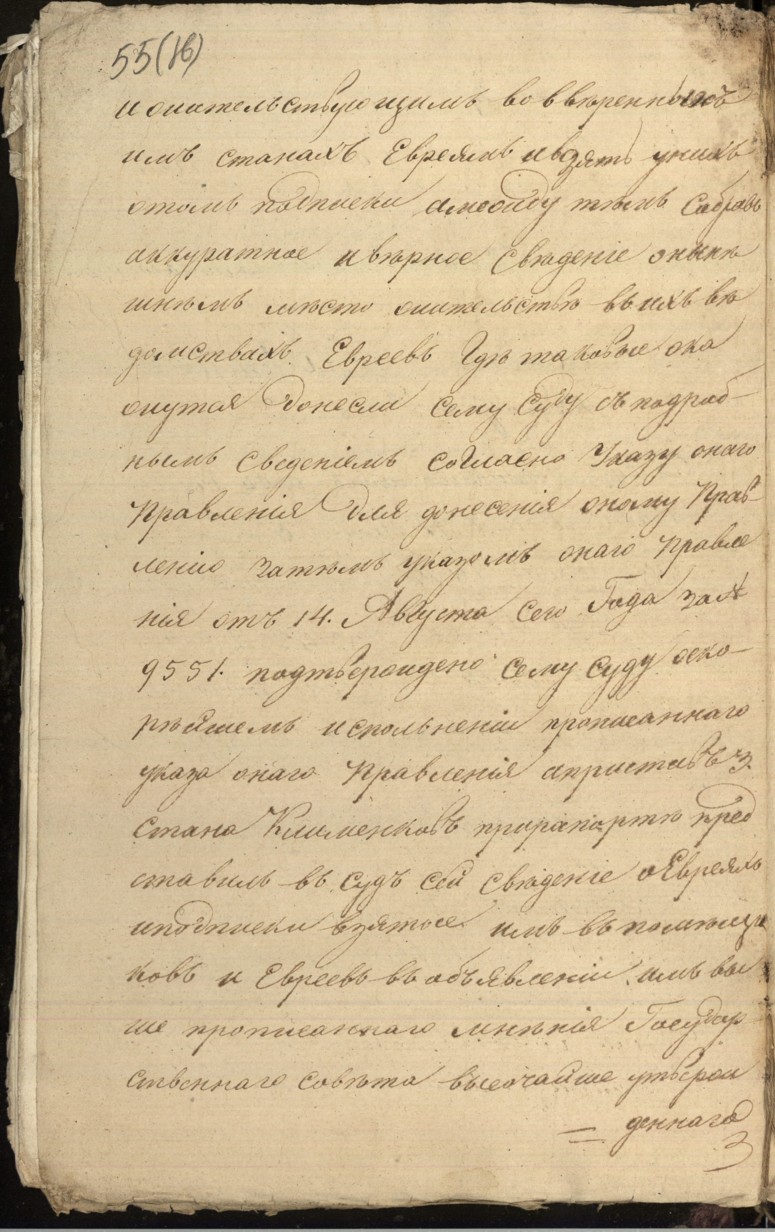 55 (16)
и жительствующимъ во ввѣренныхъ
имъ станахъ Евреямъ и взять у нихъ
этомъ подписки а между тѣмъ собравъ
аккуратное и вѣрное свѣденіе о нынѣ
шнѣмъ мѣсто жительствѣ въ ихъ вѣ
домствахъ Евреевъ Гдѣ таковые ока
жутся донесли сему Суду съ подроб-
нымъ сведеніемъ согласно Указу онаго
Правленія для донесенія оному Прав-
ленію затѣмъ указомъ онаго Правле
нія отъ 14. Августа сего Года за №
9551. подтверждено сему суду оско-
рѣйшемъ исполненіи прописаннаго
указа онаго Правленія а приставъ 3.
стана Клименковъ при рапортѣ пред
ставилъ въ судъ сей свѣденіе о Евреяхъ
и подписки взятые имъ въ помѣщи
ковъ и Евреевъ въ объявленіи имъ вы
ше прописаннаго мнѣнія Государ
ственнаго совѣта высочайше утверж
деннаго
3